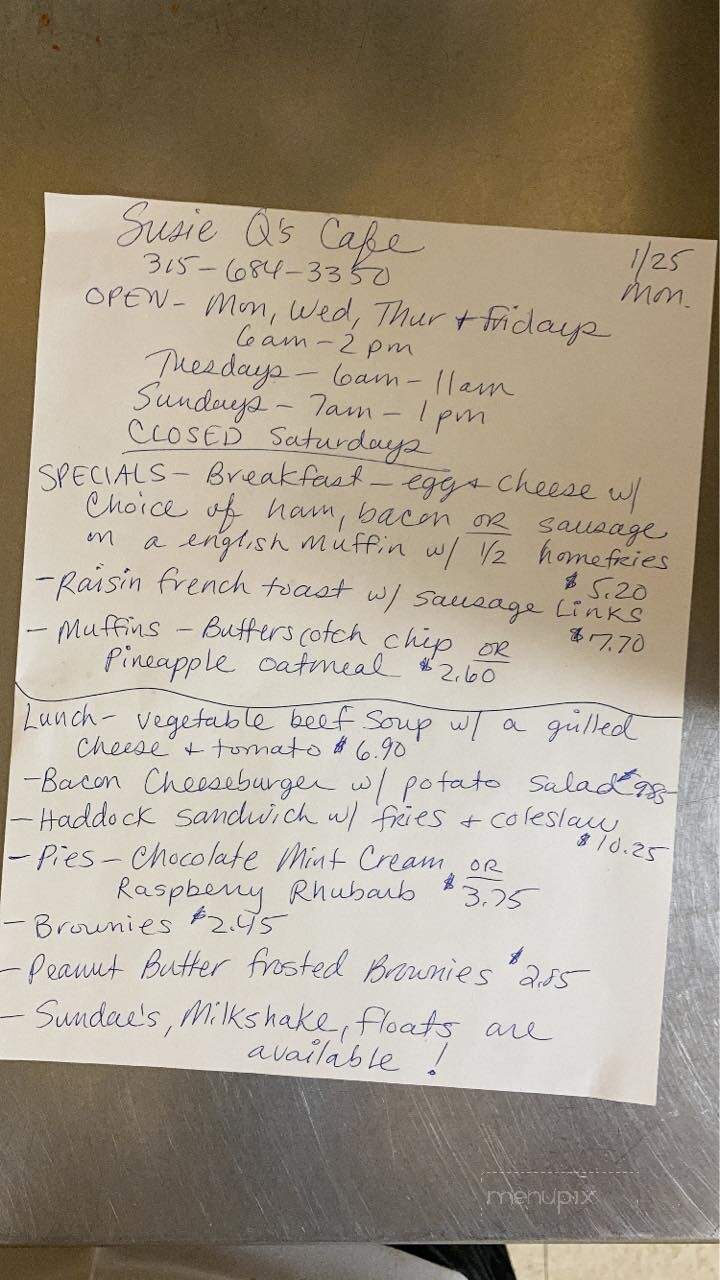 Susie Q's Cafe
1/25
315-684-3350
Mon.
OPEN - Mon, Wed, Thur + fridays
6am - 2pm
Tuesdays - 6am - 11am
Sundays - 7am - 1pm
CLOSED Saturdays
SPECIALS - Breakfast - egg + cheese w/
Choice of ham, bacon OR sausage
on a english muffin w/ 1/2 homefries
$5.20
- Raisin french toast w/ sausage Links
$7.70
- Muffins - Butterscotch chip OR
Pineapple oatmeal $2.60
Lunch - vegetable beef Soup w/ a grilled
Cheese + tomato $6.90
- Bacon Cheeseburger w/ potato Salad $9.85
- Haddock sandwich w/ fries + coleslaw
$10.25
- Pies - Chocolate Mint Cream OR
Raspberry Rhubarb $3.75
- Brownies $2.45
- Peanut Butter frosted Brownies $2.85
- Sundae's, Milkshake, floats are
available !
menupix